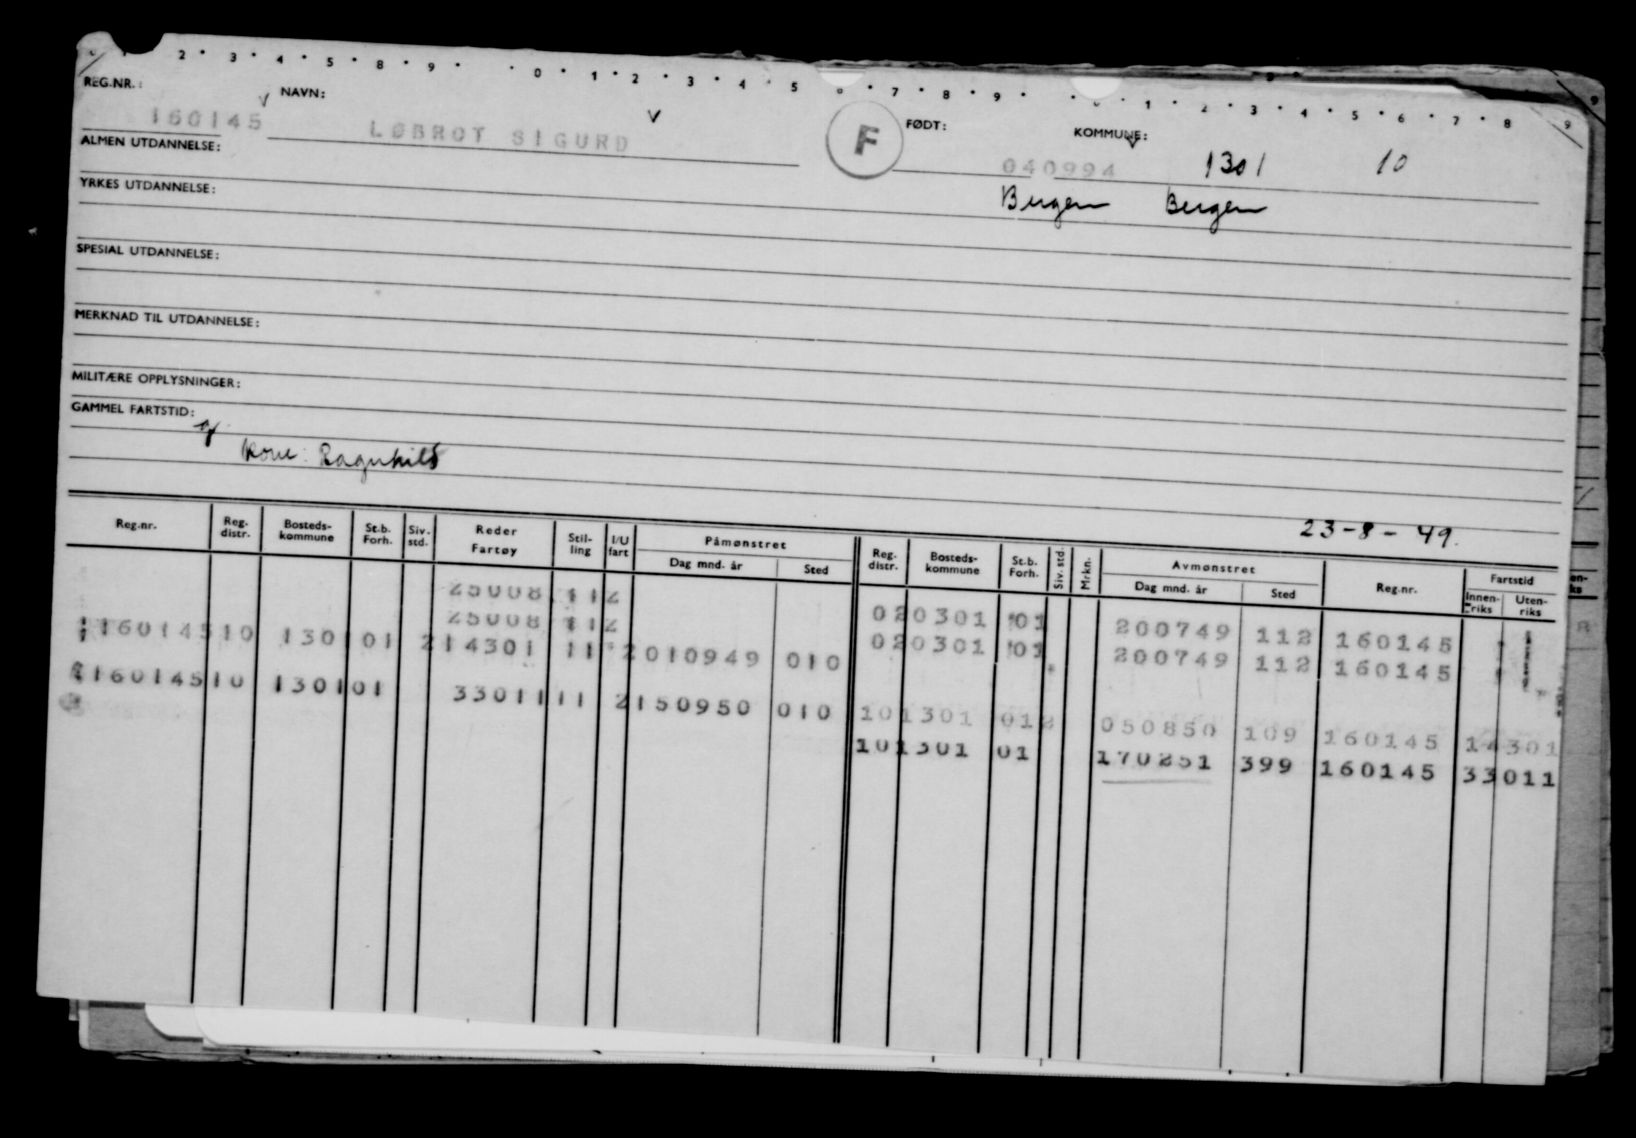 2 • 3 • 4 • 5 • 8 • 9 • • 0 • 1 • 2 • 3 • 4 • 5 • 7 • 8 • 9 • • 0 • 1 • 2 • 3 • 4 • 5 • 6 • 7 • 8 9
REG.NR.: NAVN: FØDT: KOMMUNE:
160145 LØBROT SIGURD F 040994 1301 10
ALMEN UTDANNELSE:
Bergen Bergen
YRKES UTDANNELSE:
SPESIAL UTDANNELSE:
MERKNAD TIL UTDANNELSE:
MILITÆRE OPPLYSNINGER:
GAMMEL FARTSTID:
Kone: Ragnhild
23-8-49.
Reg.nr. Reg. distr. Bosteds-kommune St.b. Forh. Siv. std. Reder Fartøy Stil-ling I/U fart Påmønstret Dag mnd. år Sted Reg. distr. Bosteds-kommune St.b. Forh. Siv. std. Mrkn. Avmønstret Dag mnd. år Sted Reg.nr. Fartstid Innen-riks Uten-riks
25008 112 020301 01 200749 112 160145
25008 112 020301 01 200749 112 160145
160145 10 1301 01 214301 11 2 010949 010
101301 012 050850 109 160145 14301
160145 10 1301 01 33011 11 2 150950 010
101301 01 170251 399 160145 33011